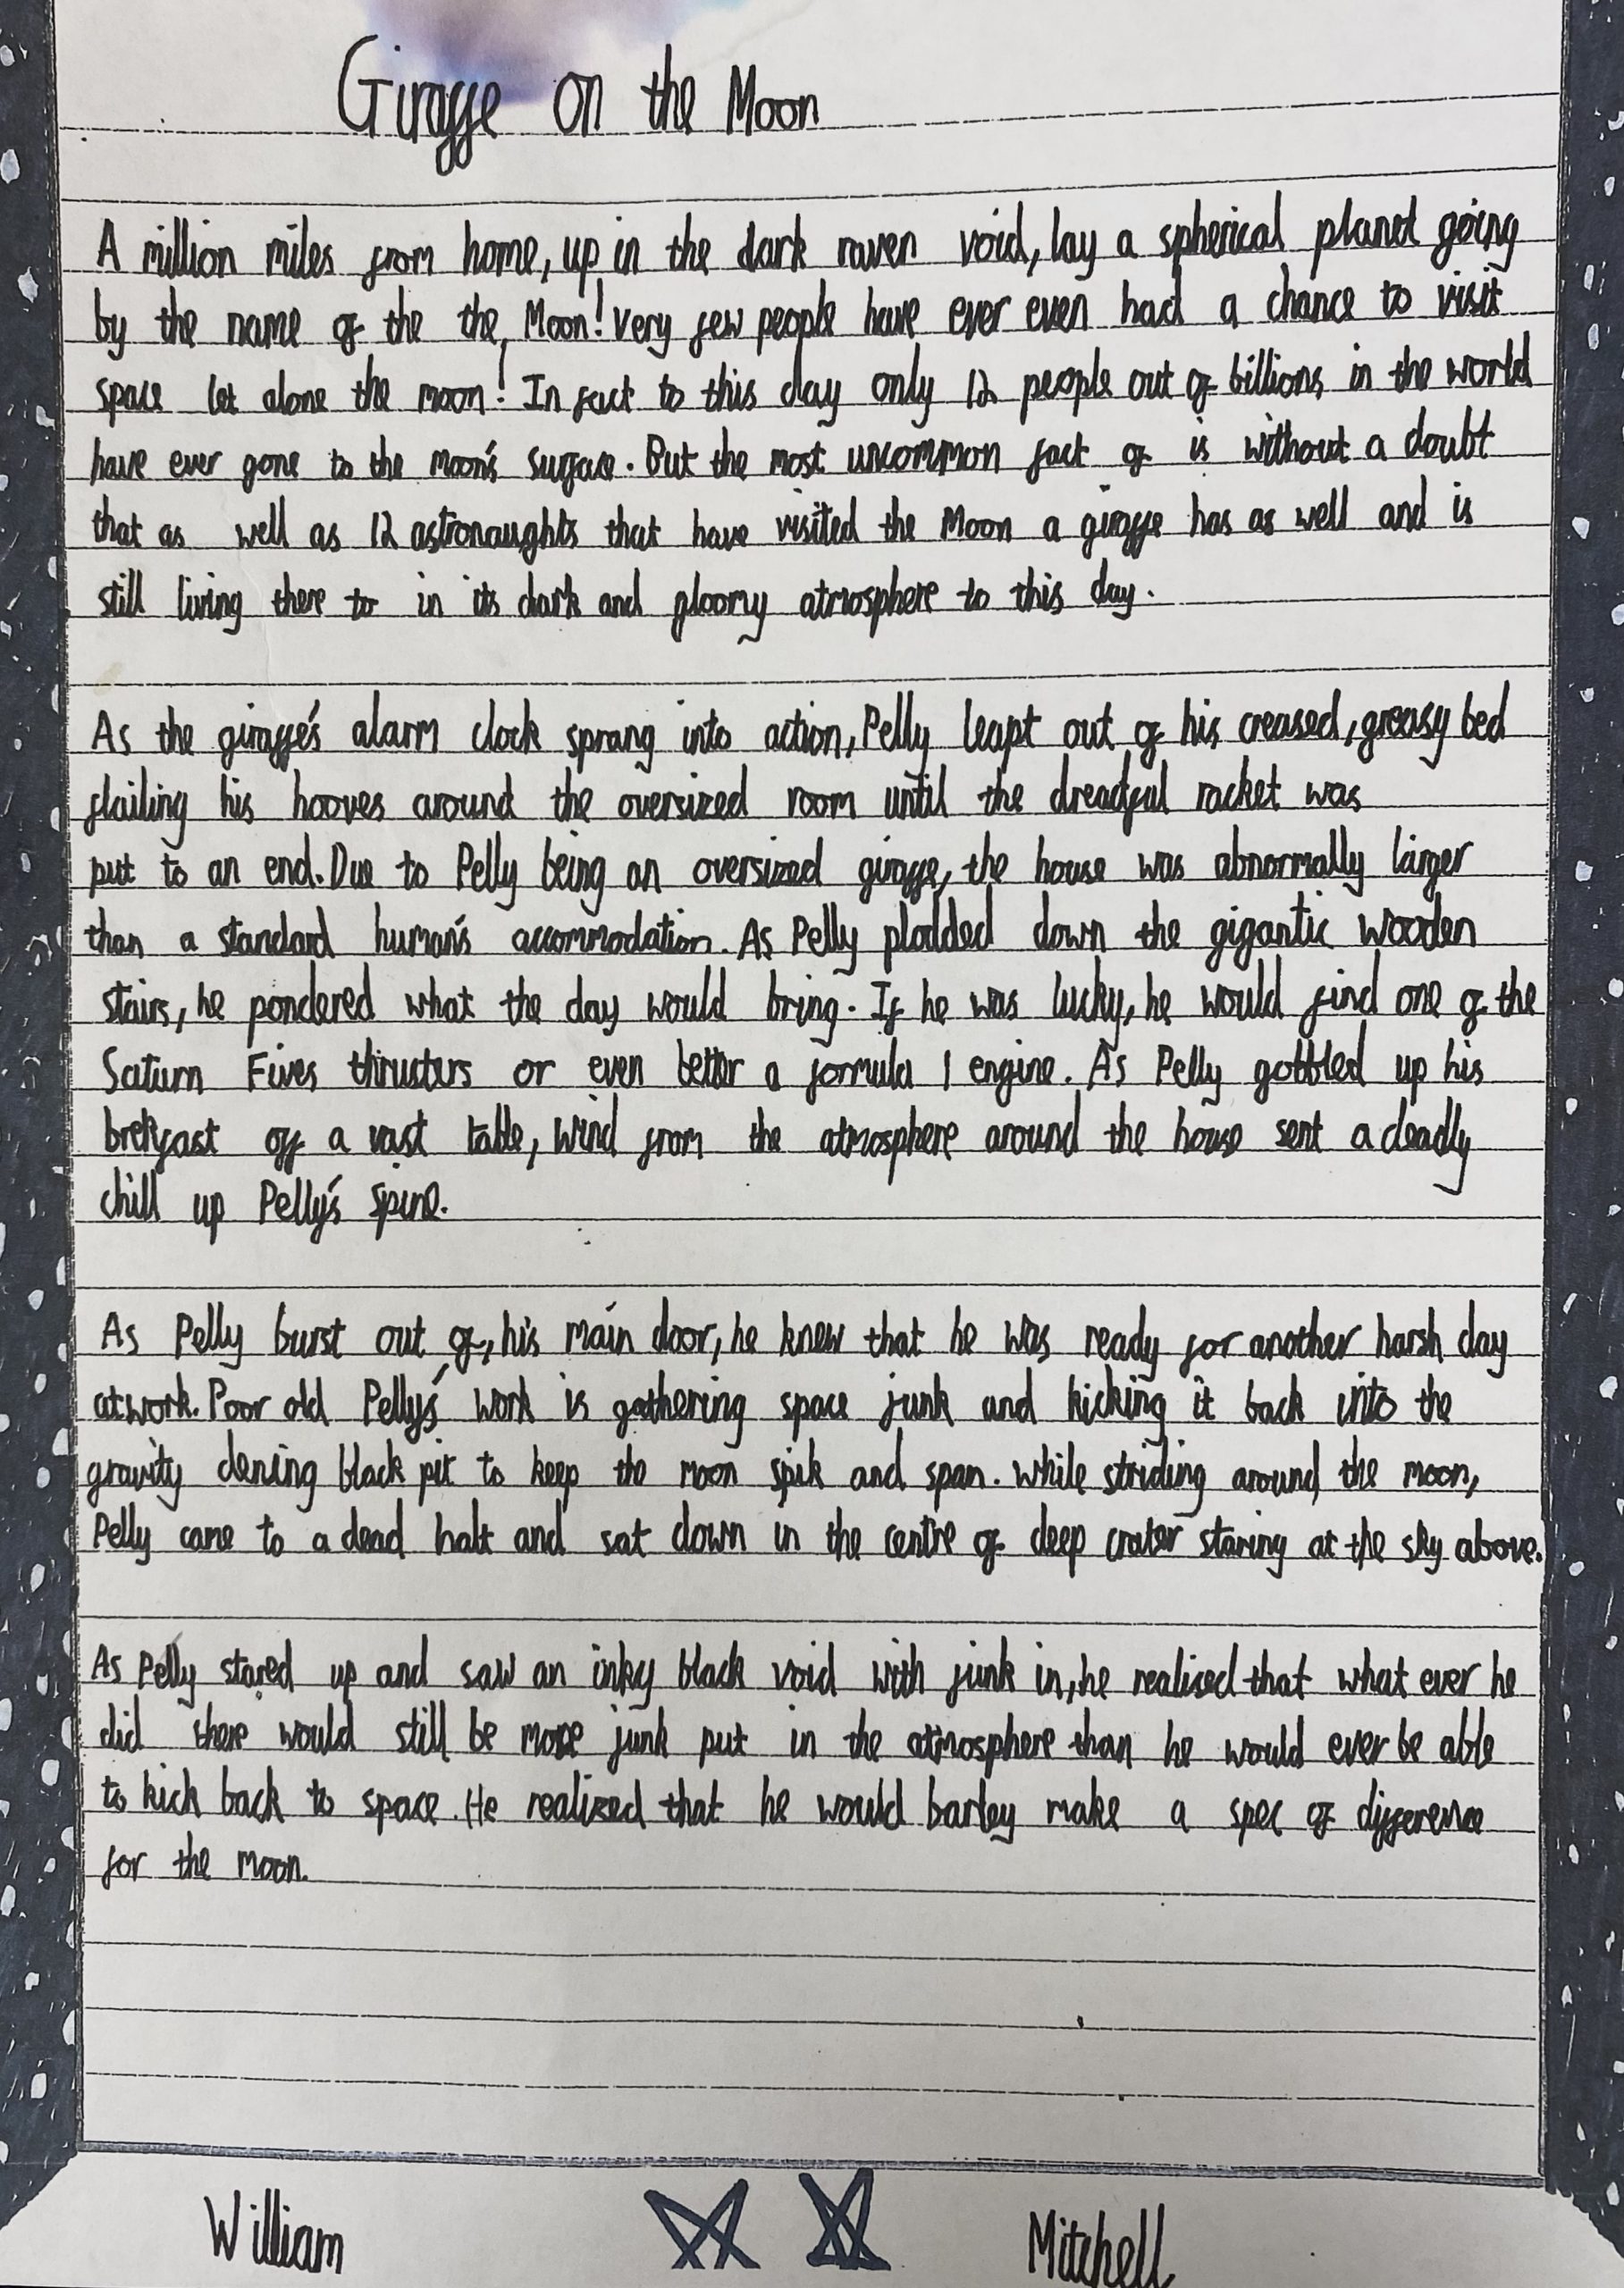 Giraffe on the Moon
A million miles from home, up in the dark raven void, lay a spherical planet going
by the name of the the Moon! Very few people have ever even had a chance to visit
space let alone the moon! In fact to this day only 12 people out of billions in the world
have ever gone to the moon's surface. But the most uncommon fact of is without a doubt
that as well as 12 astronaughts that have visited the Moon a giraffe has as well and is
still living there to in its dark and gloomy atmosphere to this day.
As the giraffe's alarm clock sprang into action, Pelly leapt out of his creased, greasy bed
flailing his hooves around the oversized room until the dreadful racket was
put to an end. Due to Pelly being an oversized giraffe, the house was abnormally larger
than a standard human's accommodation. As Pelly plodded down the gigantic wooden
stairs, he pondered what the day would bring. If he was lucky, he would find one of the
Saturn Fives thrusters or even better a formula 1 engine. As Pelly gobbled up his
brekfast off a vast table, wind from the atmosphere around the house sent a deadly
chill up Pelly's spine.
As Pelly burst out of, his main door, he knew that he was ready for another harsh day
at work. Poor old Pelly's work is gathering space junk and kicking it back into the
gravity dening black pit to keep the moon spik and span. While striding around the moon,
Pelly came to a dead halt and sat down in the centre of deep crater staring at the sky above.
As Pelly stared up and saw an inky black void with junk in, he realised that what ever he
did there would still be more junk put in the atmosphere than he would ever be able
to kick back to space. He realized that he would barley make a spec of difference
for the moon.
William Mitchell